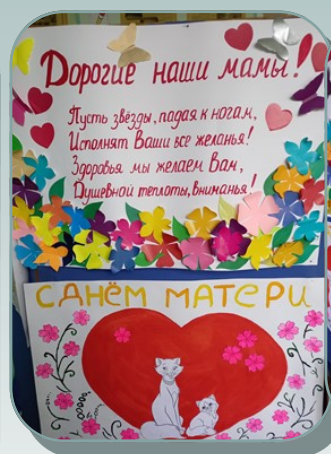 Дорогие наши мамы!
Пусть звёзды, падая к ногам,
Исполнят Ваши все желанья!
Здоровья мы желаем Вам,
Душевной теплоты, вниманья!
С ДНЁМ МАТЕРИ